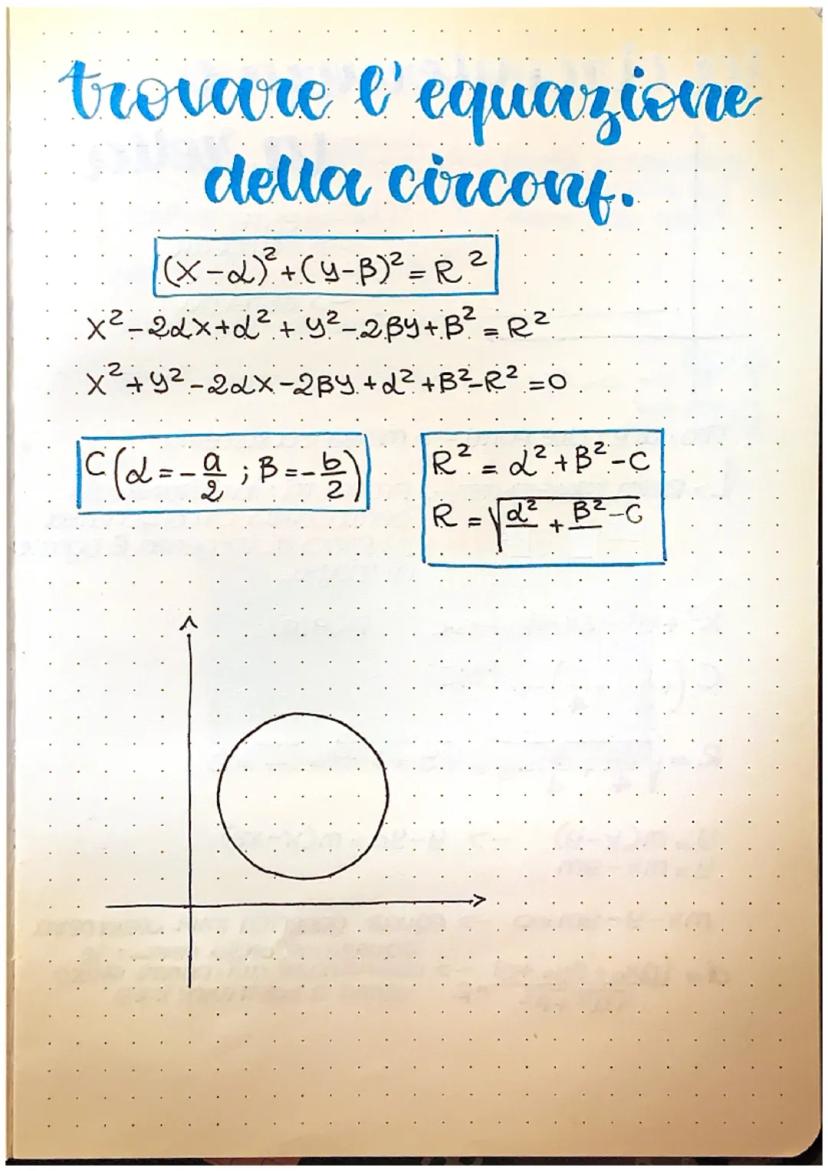 trovare l'equazione
della circonf.
(x-α)²+(y-β)²=R²
x²-2αx+α²+y²-2βy+β²=R²
x²+y²-2αx-2βy+α²+β²-R²=0
C(α=-a/2; β=-b/2)
R²=α²+β²-C
R=√α²+β²-C